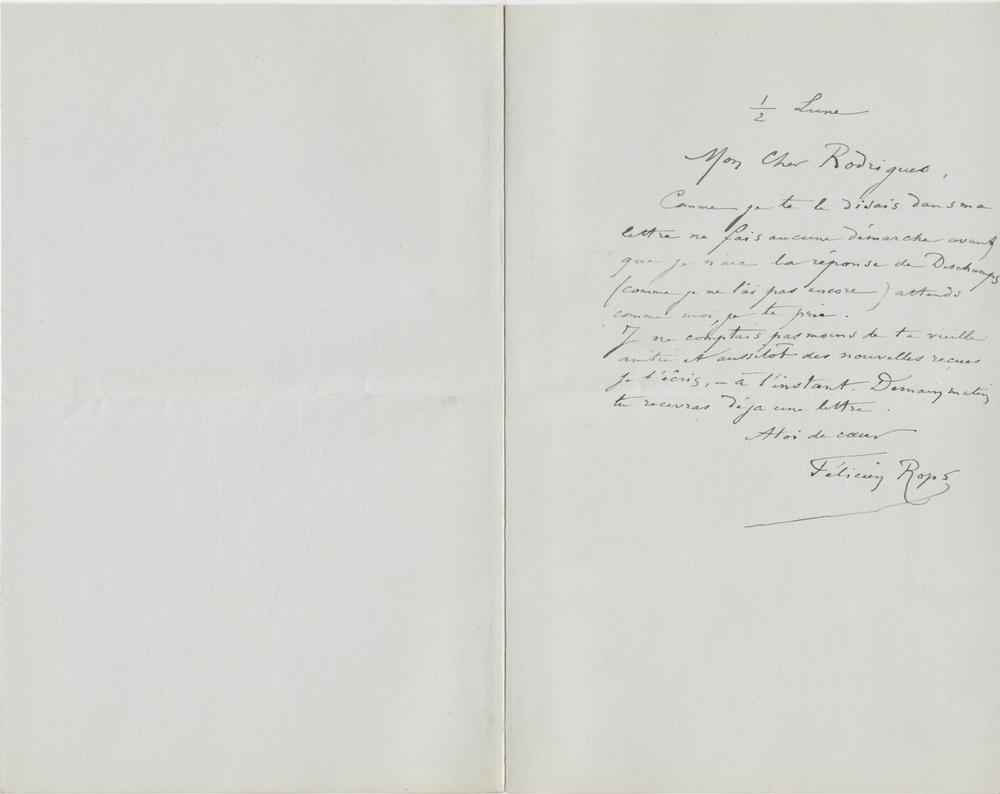 1/2 Lune
Mon Cher Rodrigues,
Comme je te le disais dans ma
lettre ne fais aucune démarche avant
que je n'aie la réponse de Deschamps
(comme je ne l'ai pas encore) attends
comme moi, je te prie.
Je ne comptais pas moins de ta vieille
amitié et aussitôt des nouvelles reçues
je t'écris, – à l'instant. Demain matin
tu recevras déja une lettre.
A toi de cœur
Félicien Rops